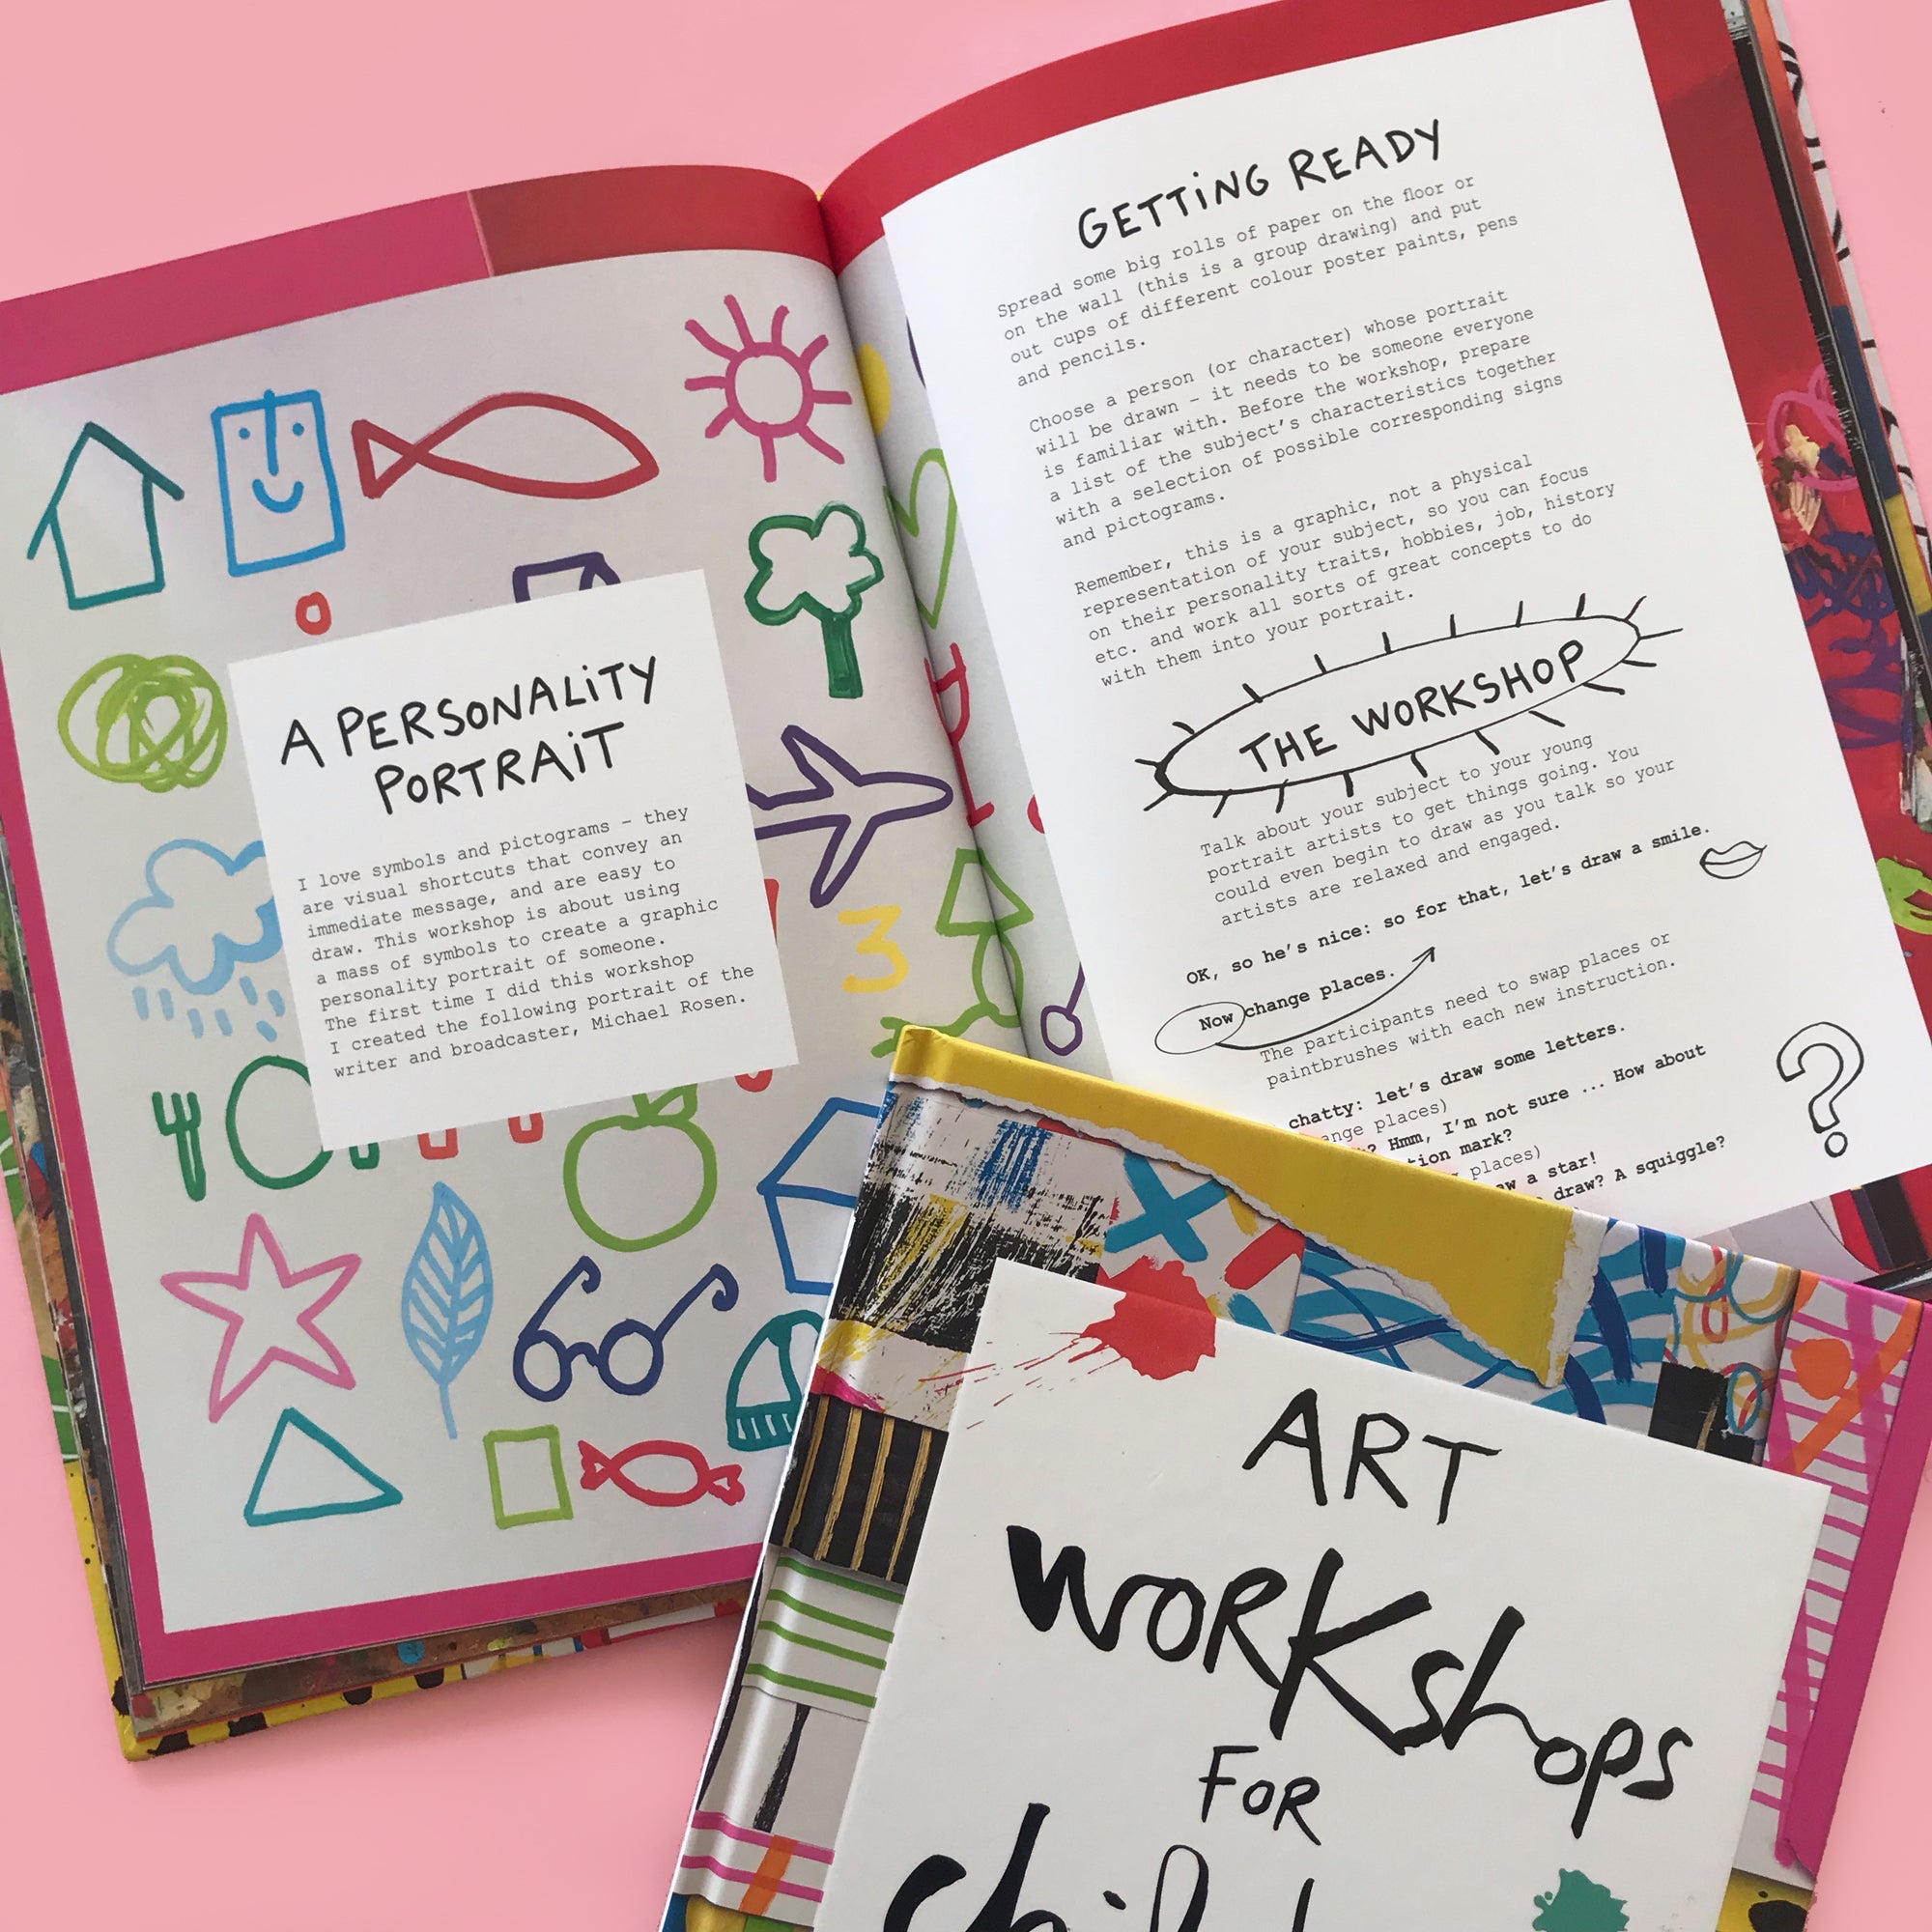 A PERSONALiTY
PORTRAiT
I love symbols and pictograms – they
are visual shortcuts that convey an
immediate message, and are easy to
draw. This workshop is about using
a mass of symbols to create a graphic
personality portrait of someone.
The first time I did this workshop
I created the following portrait of the
writer and broadcaster, Michael Rosen.
3
GETTiNG READY
Spread some big rolls of paper on the floor or
on the wall (this is a group drawing) and put
out cups of different colour poster paints, pens
and pencils.
Choose a person (or character) whose portrait
will be drawn – it needs to be someone everyone
is familiar with. Before the workshop, prepare
a list of the subject's characteristics together
with a selection of possible corresponding signs
and pictograms.
Remember, this is a graphic, not a physical
representation of your subject, so you can focus
on their personality traits, hobbies, job, history
etc. and work all sorts of great concepts to do
with them into your portrait.
THE WORKSHOP
Talk about your subject to your young
portrait artists to get things going. You
could even begin to draw as you talk so your
artists are relaxed and engaged.
OK, so he's nice: so for that, let's draw a smile.
Now change places.
The participants need to swap places or
paintbrushes with each new instruction.
chatty: let's draw some letters.
places)
? Hmm, I'm not sure ... How about
mark?
places)
a star!
draw? A squiggle?
?
ART
WORKshops
FOR